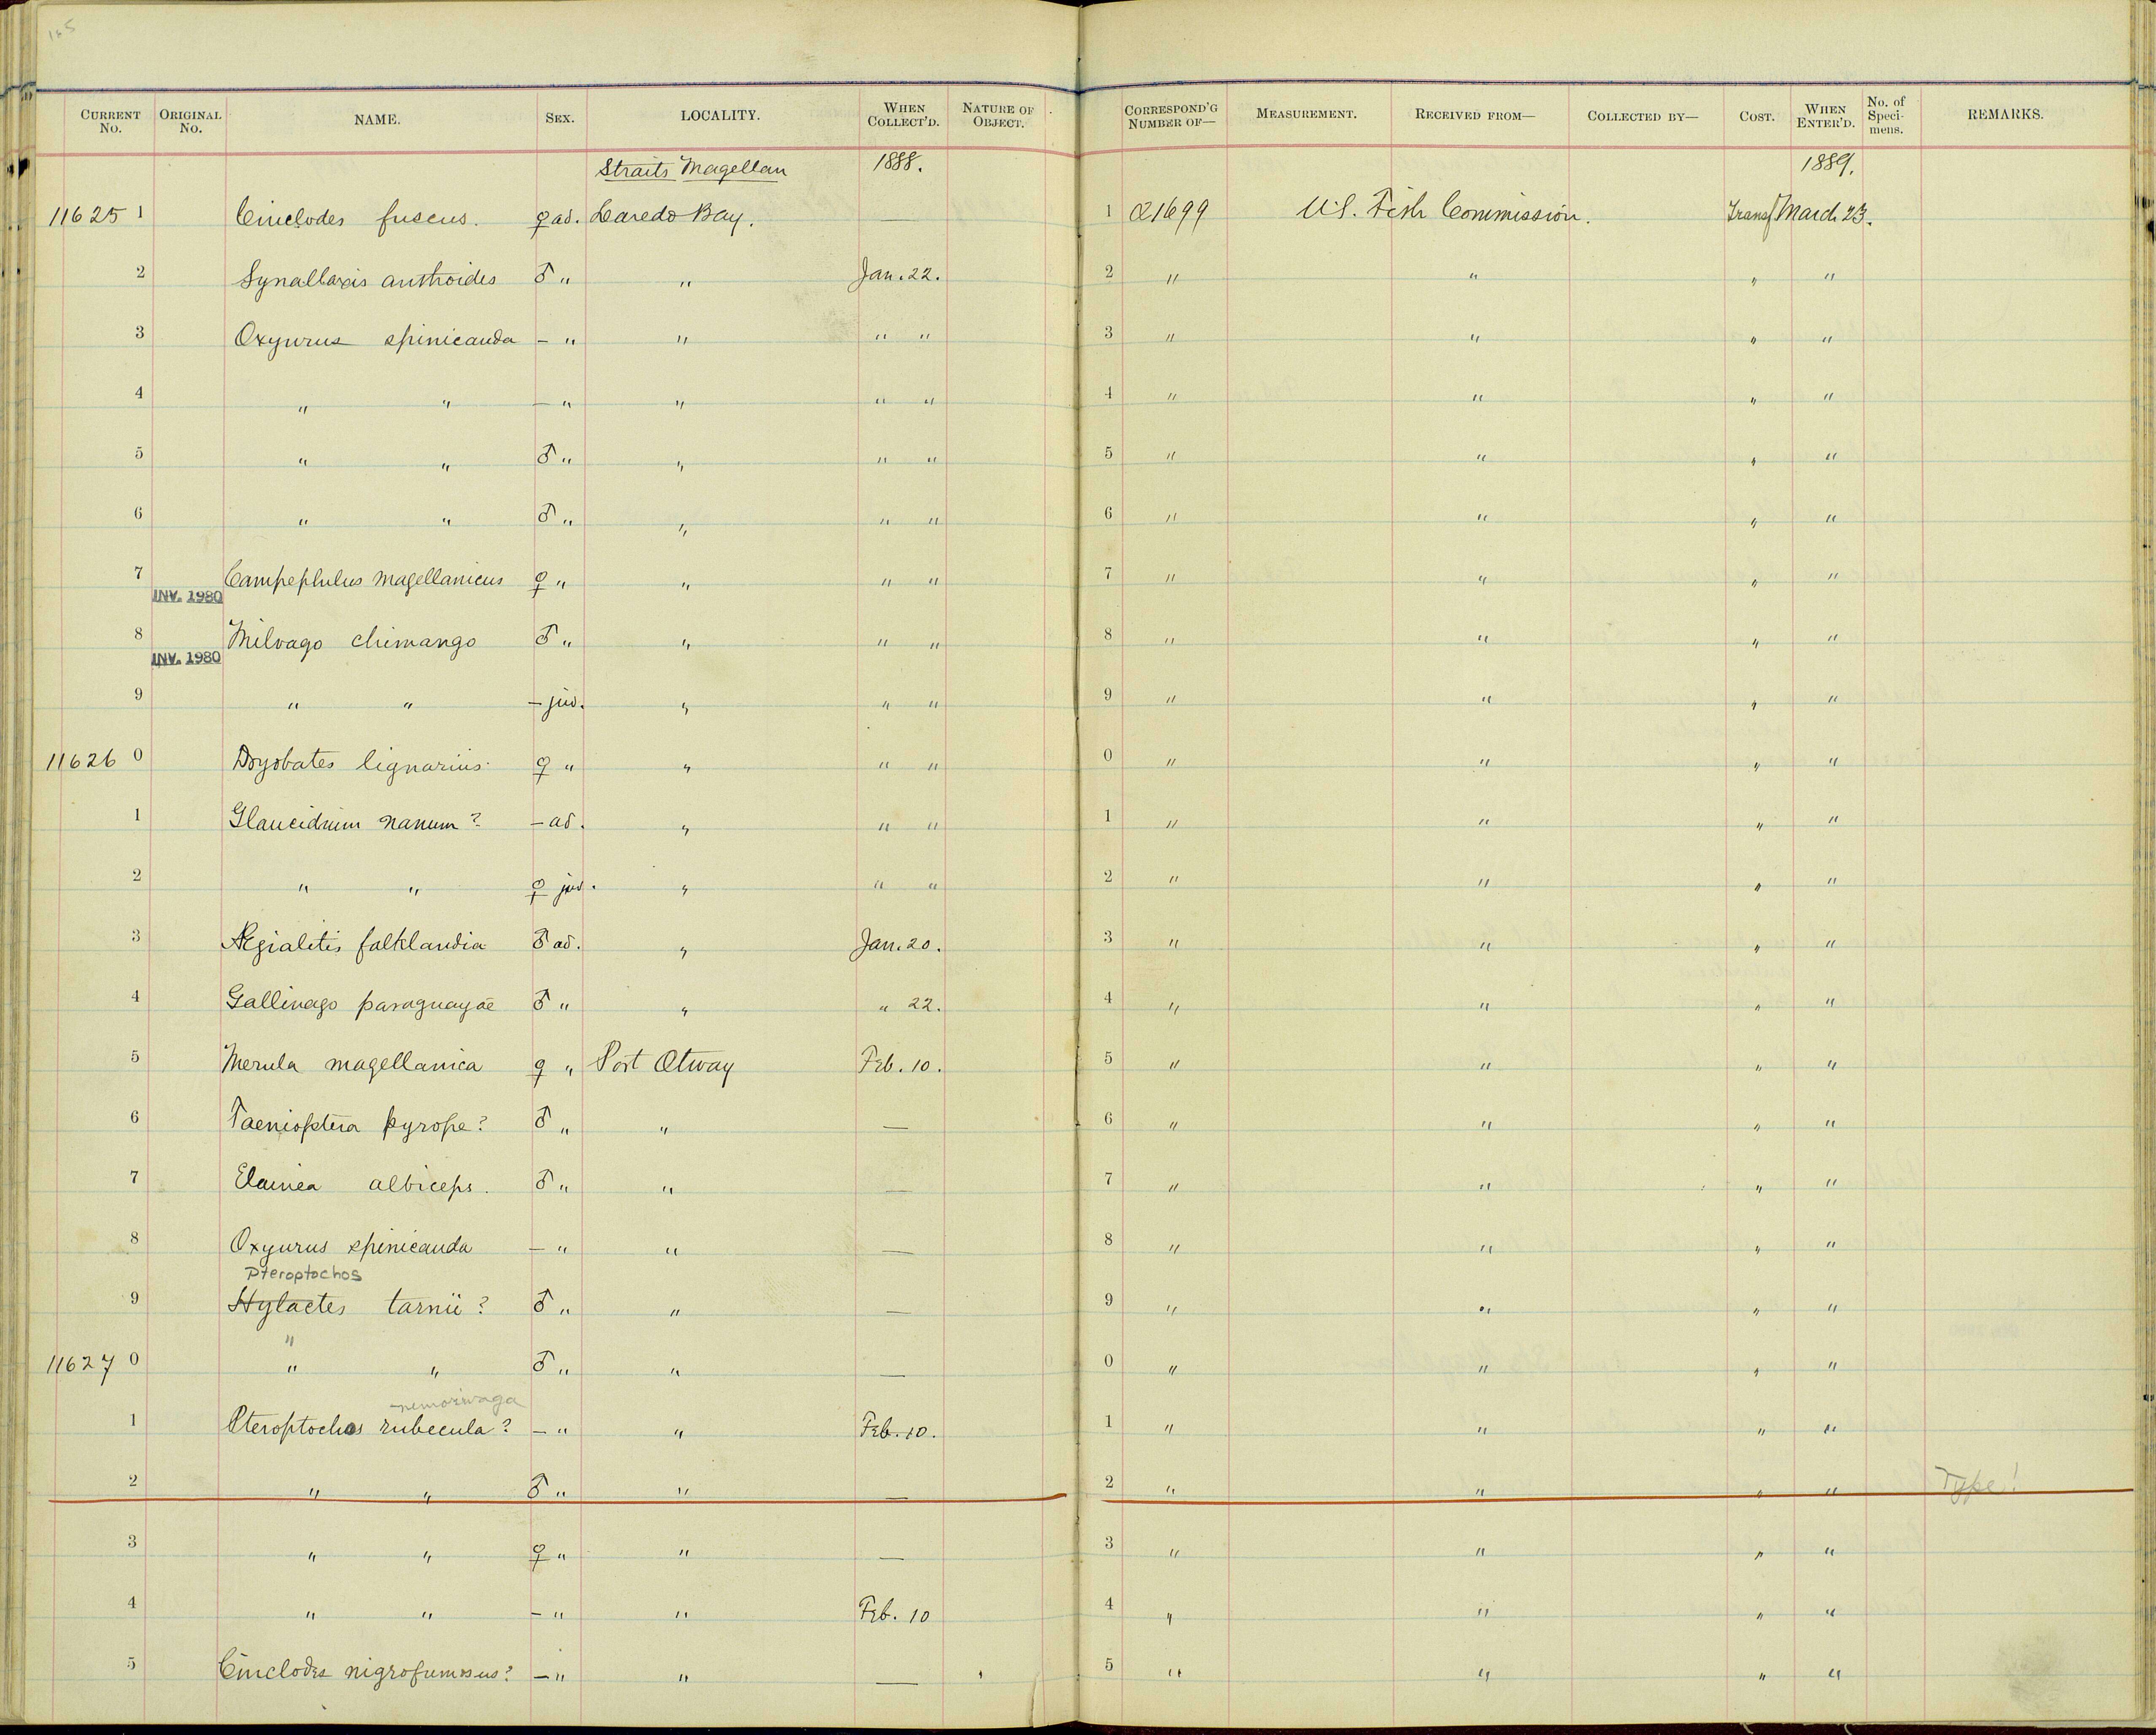 165
CURRENT No. ORIGINAL No. NAME. SEX. LOCALITY. WHEN COLLECT'D. NATURE OF OBJECT. CORRESPOND'G NUMBER OF— MEASUREMENT. RECEIVED FROM— COLLECTED BY— COST. WHEN ENTER'D. No. of Speci-mens. REMARKS.
Straits Magellan 1888. 1889.
11625 1 Cinclodes fuscus. ♀ ad. Laredo Bay. — 1 21699 U.S. Fish Commission. Transf March 23.
2 Synallaxis anthoides ♂ " " Jan. 22. 2 " " " "
3 Oxyurus spinicauda – " " " " 3 " " " "
4 " " – " " " " 4 " " " "
5 " " ♂ " " " " 5 " " " "
6 " " ♂ " " " " 6 " " " "
7 INV. 1980 Campephilus magellanicus ♀ " " " " 7 " " " "
8 INV. 1980 Milvago chimango ♂ " " " " 8 " " " "
9 " " – juv. " " " 9 " " " "
11626 0 Dryobates lignarius. ♀ " " " " 0 " " " "
1 Glaucidium nanum? – ad. " " " 1 " " " "
2 " " ♀ juv. " " " 2 " " " "
3 Ægialitis falklandia ♂ ad. " Jan. 20. 3 " " " "
4 Gallinago paraguayae ♂ " " " 22. 4 " " " "
5 Merula magellanica ♀ " Port Otway Feb. 10. 5 " " " "
6 Taenioptera pyrope? ♂ " " — 6 " " " "
7 Elainea albiceps. ♂ " " — 7 " " " "
8 Oxyurus spinicauda – " " — 8 " " " "
Pteroptochos
9 Hylactes tarnii? ♂ " " — 9 " " " "
"
11627 0 " " ♂ " " — 0 " " " "
nemorivaga
1 Pteroptochos rubecula? – " " Feb. 10. 1 " " " "
2 " " ♂ " " — 2 " " " " Type!
3 " " ♀ " " — 3 " " " "
4 " " – " " Feb. 10 4 " " " "
5 Cinclodes nigrofumosus? – " " — 5 " " " "